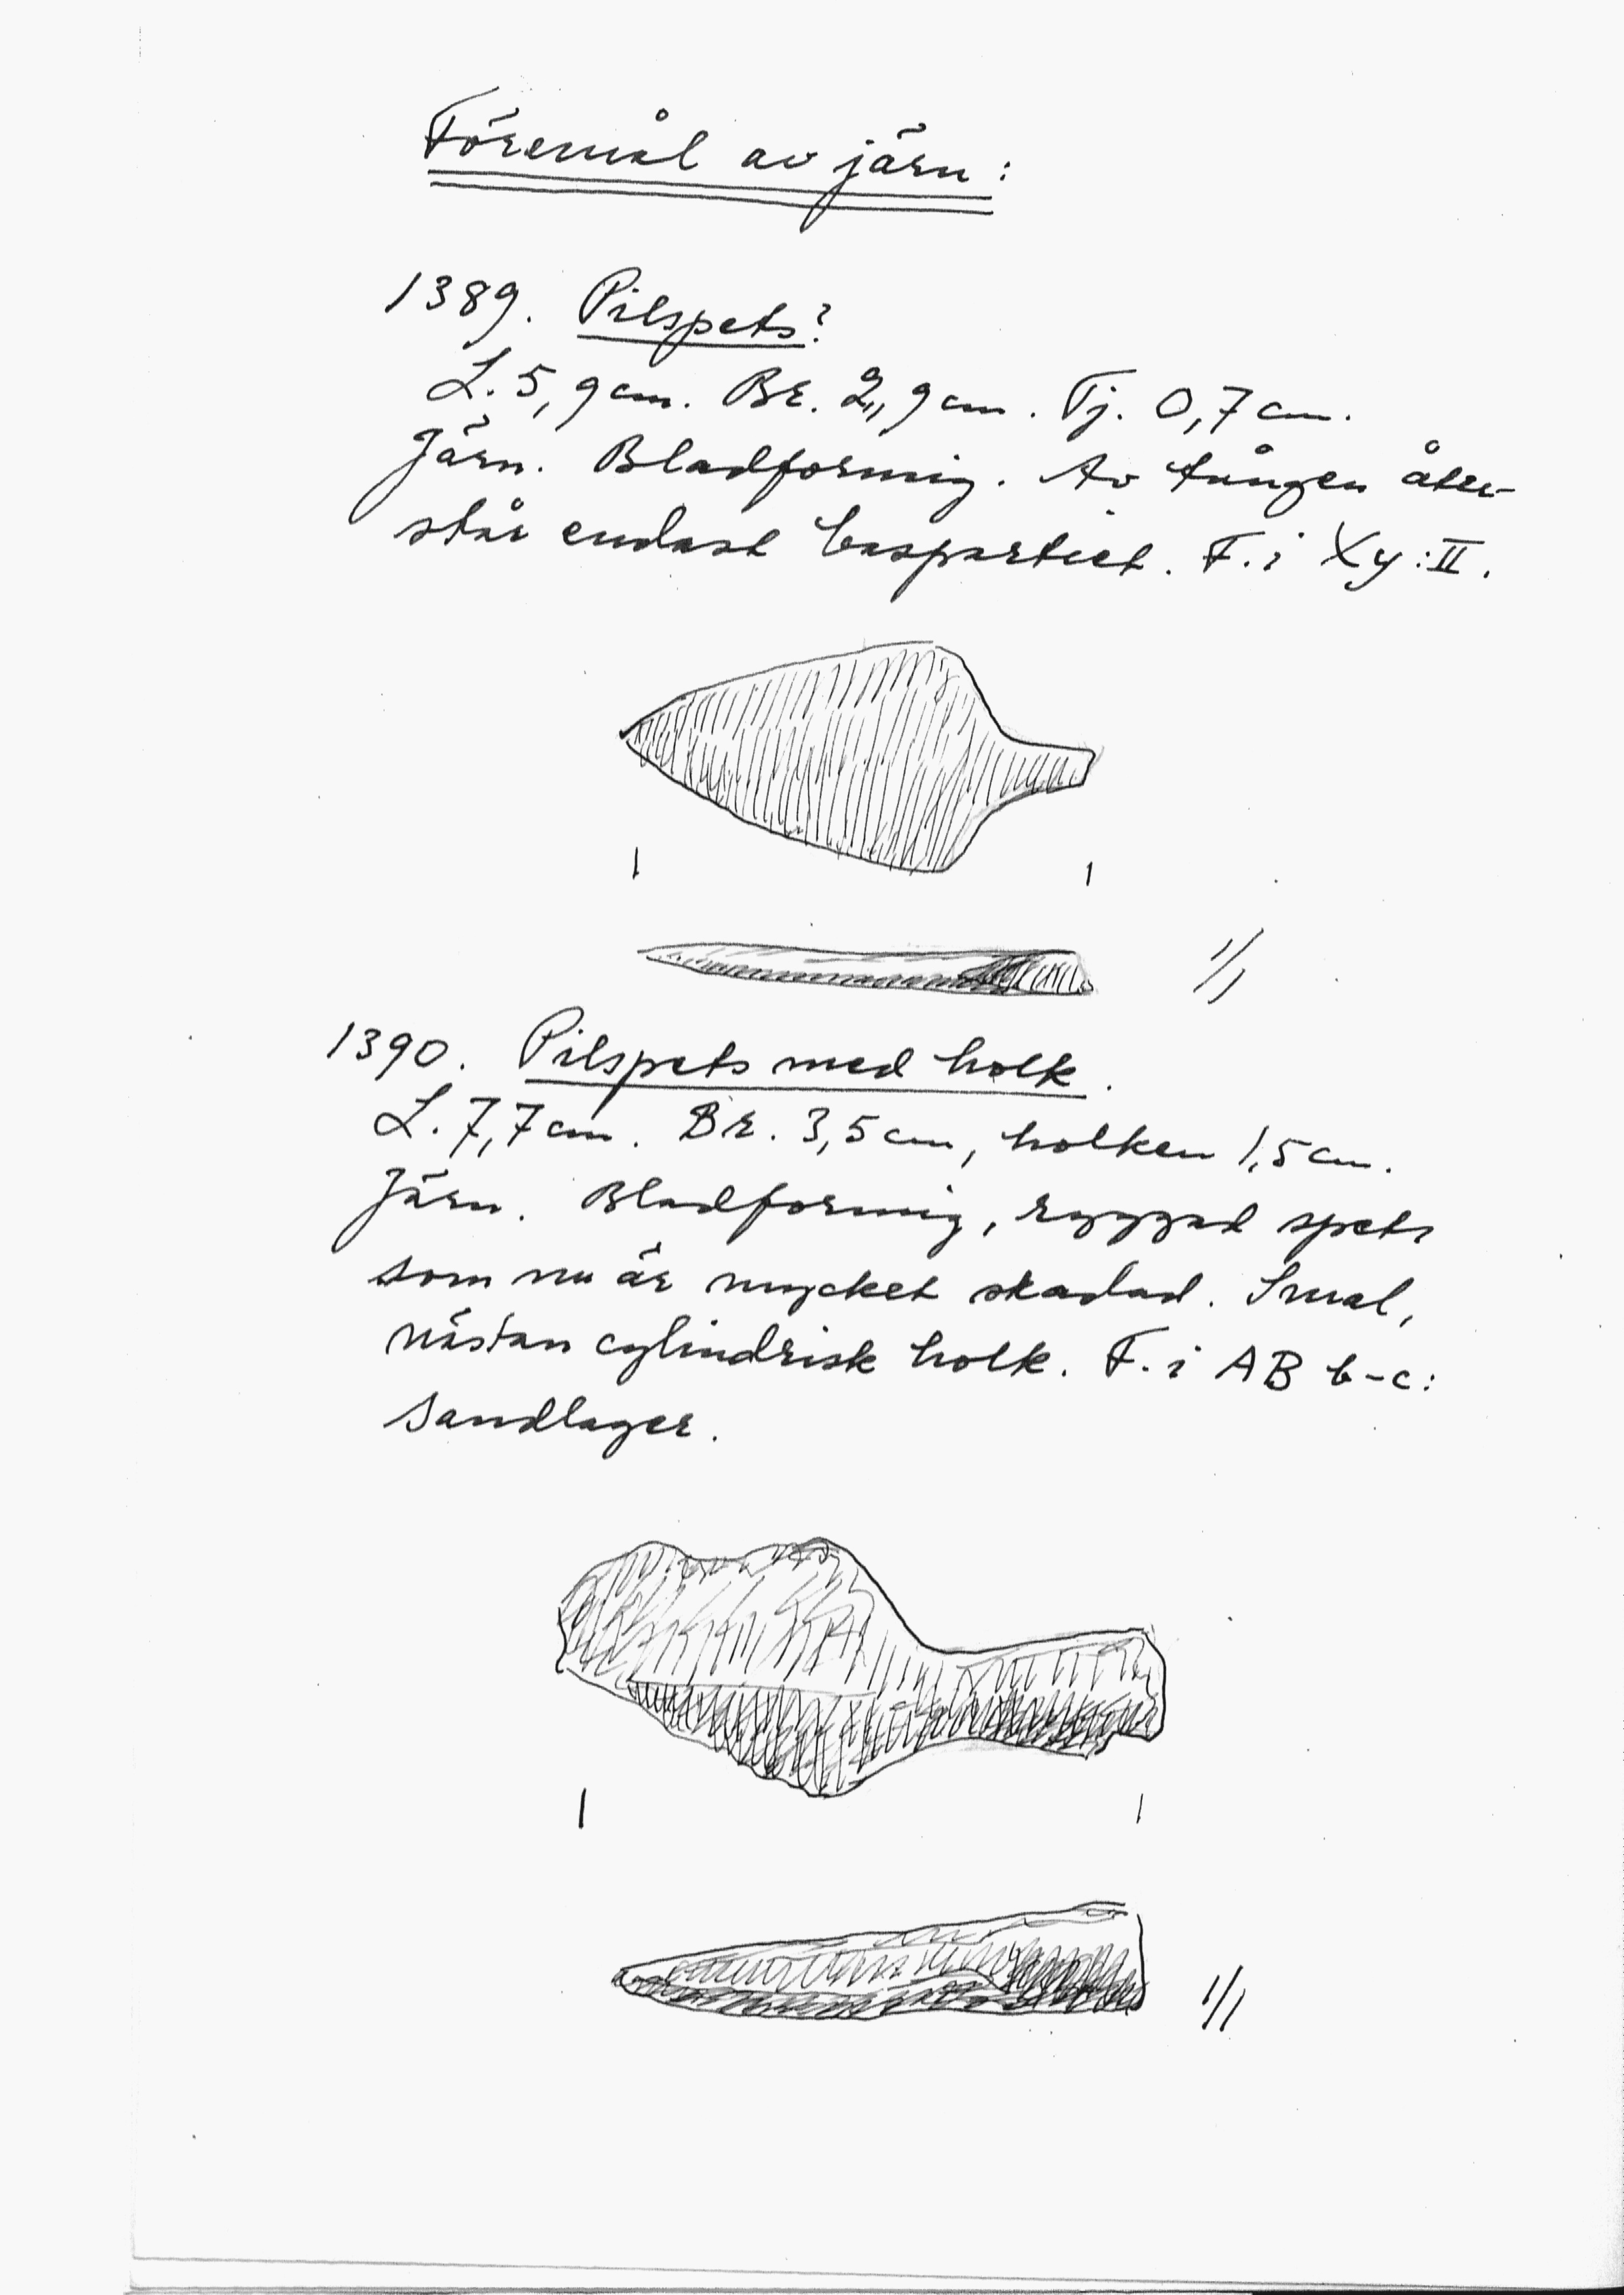 Föremål av järn:
1389. Pilspets?
L. 5,9 cm. Br. 2,9 cm. Tj. 0,7 cm.
Järn. Bladformig. Av tången åter-
står endast baspartiet. F. i Xy:II.
1/1
1390. Pilspets med holk.
L. 7,7 cm. Br. 3,5 cm, holken 1,5 cm.
Järn. Bladformig, ryggad spets
som nu är mycket skadad. Smal,
nästan cylindrisk holk. F. i AB b-c:
Sandlager.
1/1